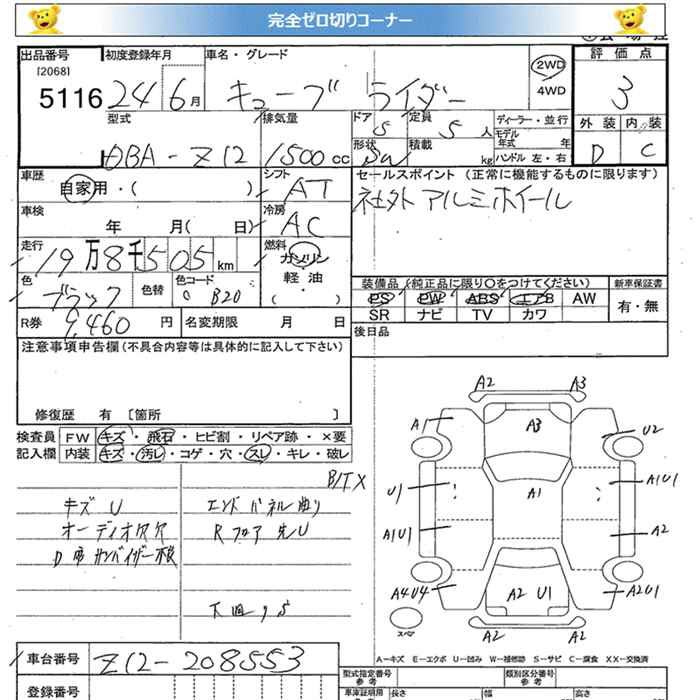 完全ゼロ切りコーナー
出品番号
[2068]
5116
初度登録年月
24年6月
車名・グレード
キューブ ライダー
2WD
4WD
評価点
3
外装 内装
D C
型式
DBA-Z12
排気量
1500cc
ドア
5
定員
5人
形状
積載
kg
ディーラー・並行
モデル年式 年
ハンドル 左・右
車歴
自家用・( )
シフト
AT
セールスポイント(正常に機能するものに限ります)
社外アルミホイール
車検
年 月( 日)
冷房
AC
走行
19万8千505km
燃料
ガソリン
軽油
( )
色
ブラック
色替
色コード
( B20 )
装備品(純正品に限り○をつけてください)
PS PW ABS エアB AW
SR ナビ TV カワ
新車保証書
有・無
R券
9,460円
名変期限 月 日
後日品
注意事項申告欄(不具合内容等は具体的に記入して下さい)
修復歴 有 〔箇所 〕
検査員記入欄
FW キズ・飛石・ヒビ割・リペア跡・×要
内装 キズ・汚レ・コゲ・穴・スレ・キレ・破レ
B/TX
キズ U
オーディオ欠
D席サンバイザー
エンドパネル曲り
Rフロア 先U
下廻りS
A2 A3
A1 A3 U2
U1 A1 A1U1
A1U1 A2
A4U4 A2 U1 A2U1
スペア
A2 A2
A-キズ E-エクボ U-凹み W-補修跡 S-サビ C-腐食 XX-交換済
車台番号
Z12-208553
登録番号
型式指定番号
参考
類別区分番号
参考
車庫証明用
長さ 幅 高さ